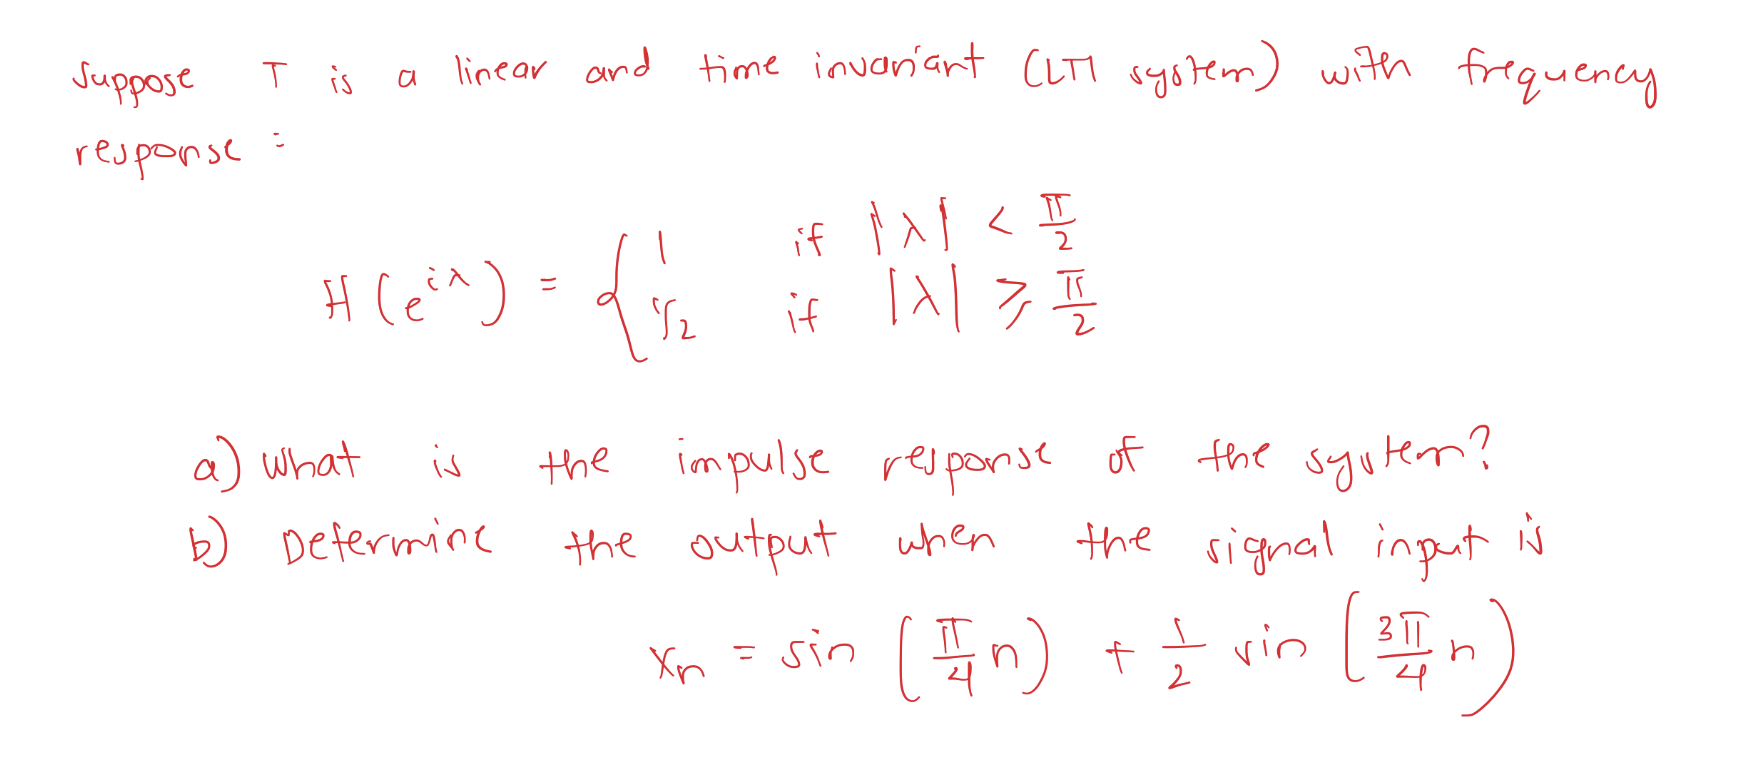 Suppose T is a linear and time invariant (LTI system) with frequency
response :
H(e^{iλ}) = { 1 if |λ| < π/2
1/2 if |λ| ≥ π/2
a) What is the impulse response of the system?
b) Determine the output when the signal input is
x_n = sin (π/4 n) + 1/2 sin (3π/4 n)